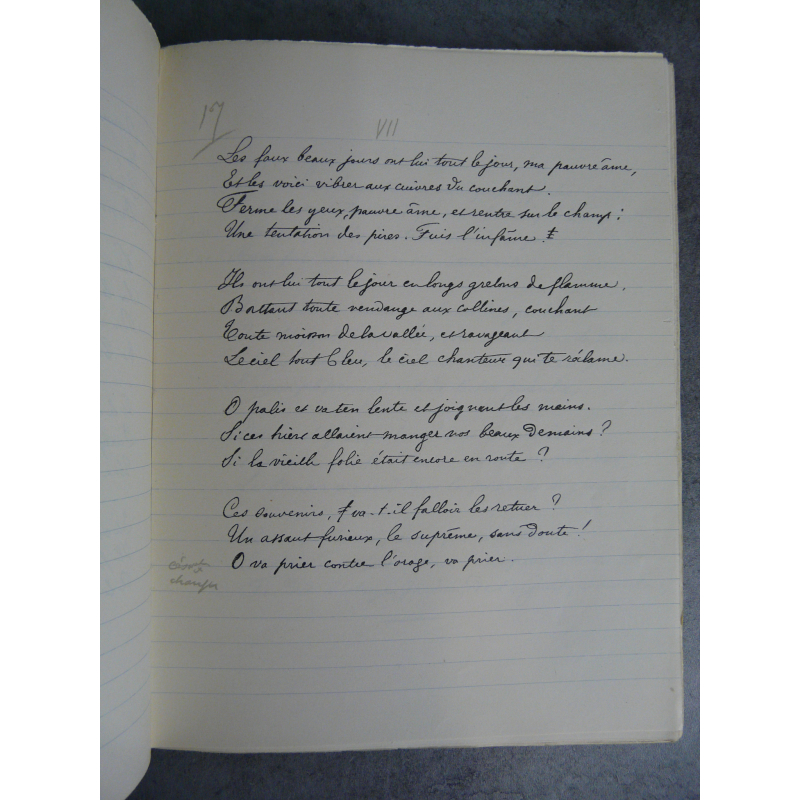 17
VII
Les faux beaux jours ont lui tout le jour, ma pauvre âme,
Et les voici vibrer aux cuivres du couchant.
Ferme les yeux, pauvre âme, et rentre sur le champ :
Une tentation des pires. Fuis l'infâme !
Ils ont lui tout le jour en longs grelons de flamme,
Battant toute vendange aux collines, couchant
Toute moisson de la vallée, et ravageant
Le ciel tout bleu, le ciel chanteur qui te réclame.
O pâlis et va t'en lente et joignant les mains.
Si ces hiers allaient manger nos beaux demains ?
Si la vieille folie était encore en route ?
Ces souvenirs, va-t-il falloir les retuer ?
Un assaut furieux, le suprême, sans doute !
O va prier contre l'orage, va prier.
changer